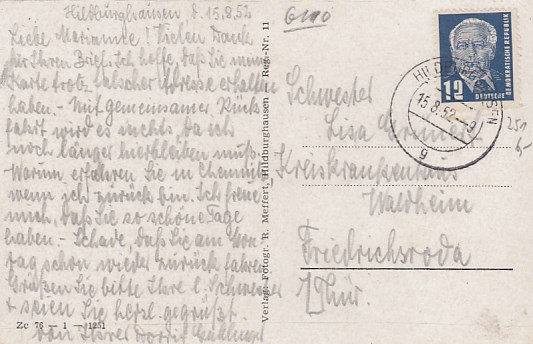 Hildburghausen, d. 15.8.52
Liebe Marianne! Vielen Dank
für Ihren Brief. Ich hoffe, daß Sie meine
Karte trotz falscher Adresse erhalten
haben. - Mit gemeinsamer Rück-
fahrt wird es nichts, da ich
noch länger hierbleiben muß.
Warum erfahren Sie in Chemnitz
wenn ich zurück bin. Ich freue
mich, daß Sie so schöne Tage
haben. - Schade, daß Sie am Mon-
tag schon wieder zurück fahren.
Grüßen Sie bitte Ihre l. Schwester
+ seien Sie herzl. gegrüßt
von Ihrer
Zc 76 — 1 — 1251
Verlag: Fotogr. R. Meffert, Hildburghausen Reg-Nr. 11
DEUTSCHE DEMOKRATISCHE REPUBLIK
12
HILDBURGHAUSEN
15.8.52.-9
g
251
Schwester
Lisa
Kreiskrankenhaus
Waldheim
Friedrichsroda
/Thür.